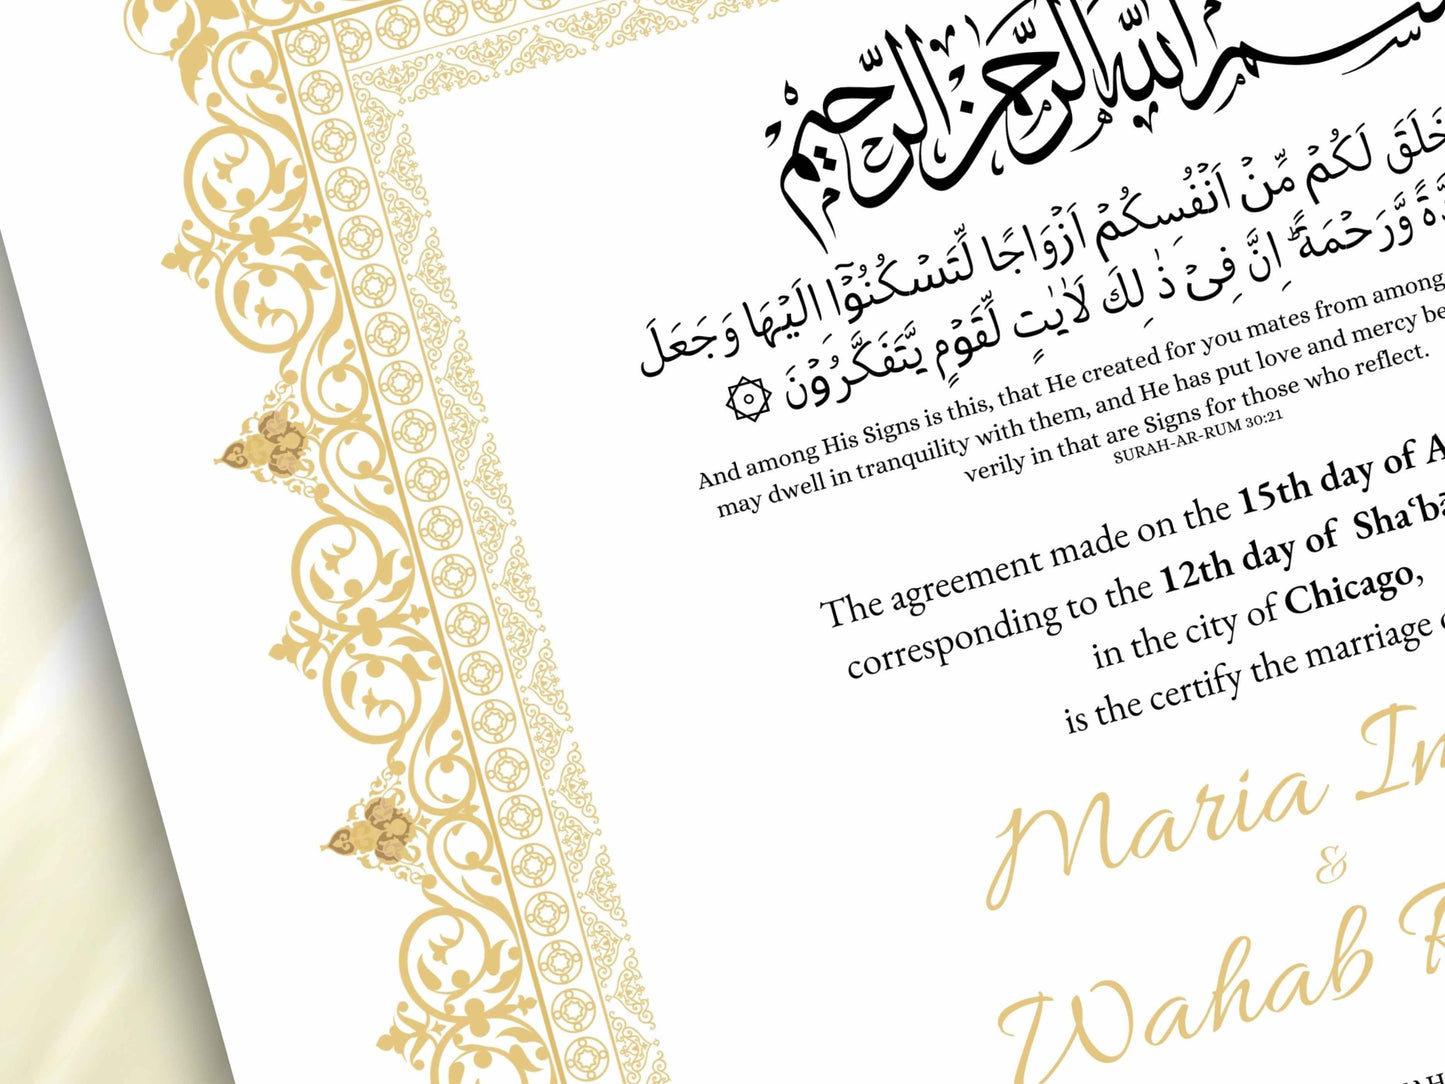 بسم الله الرحمن الرحيم
خَلَقَ لَكُمۡ مِّنۡ اَنۡفُسِكُمۡ اَزۡوَاجًا لِّتَسۡكُنُوۡۤا اِلَيۡهَا وَجَعَلَ
وَّرَحۡمَةً ؕ اِنَّ فِىۡ ذٰ لِكَ لَاٰيٰتٍ لِّقَوۡمٍ يَّتَفَكَّرُوۡنَ ۞
And among His Signs is this, that He created for you mates from among
may dwell in tranquility with them, and He has put love and mercy be
verily in that are Signs for those who reflect.
SURAH-AR-RUM 30:21
The agreement made on the 15th day of A
corresponding to the 12th day of Sha‘b
in the city of Chicago,
is the certify the marriage
Maria
&
Wahab